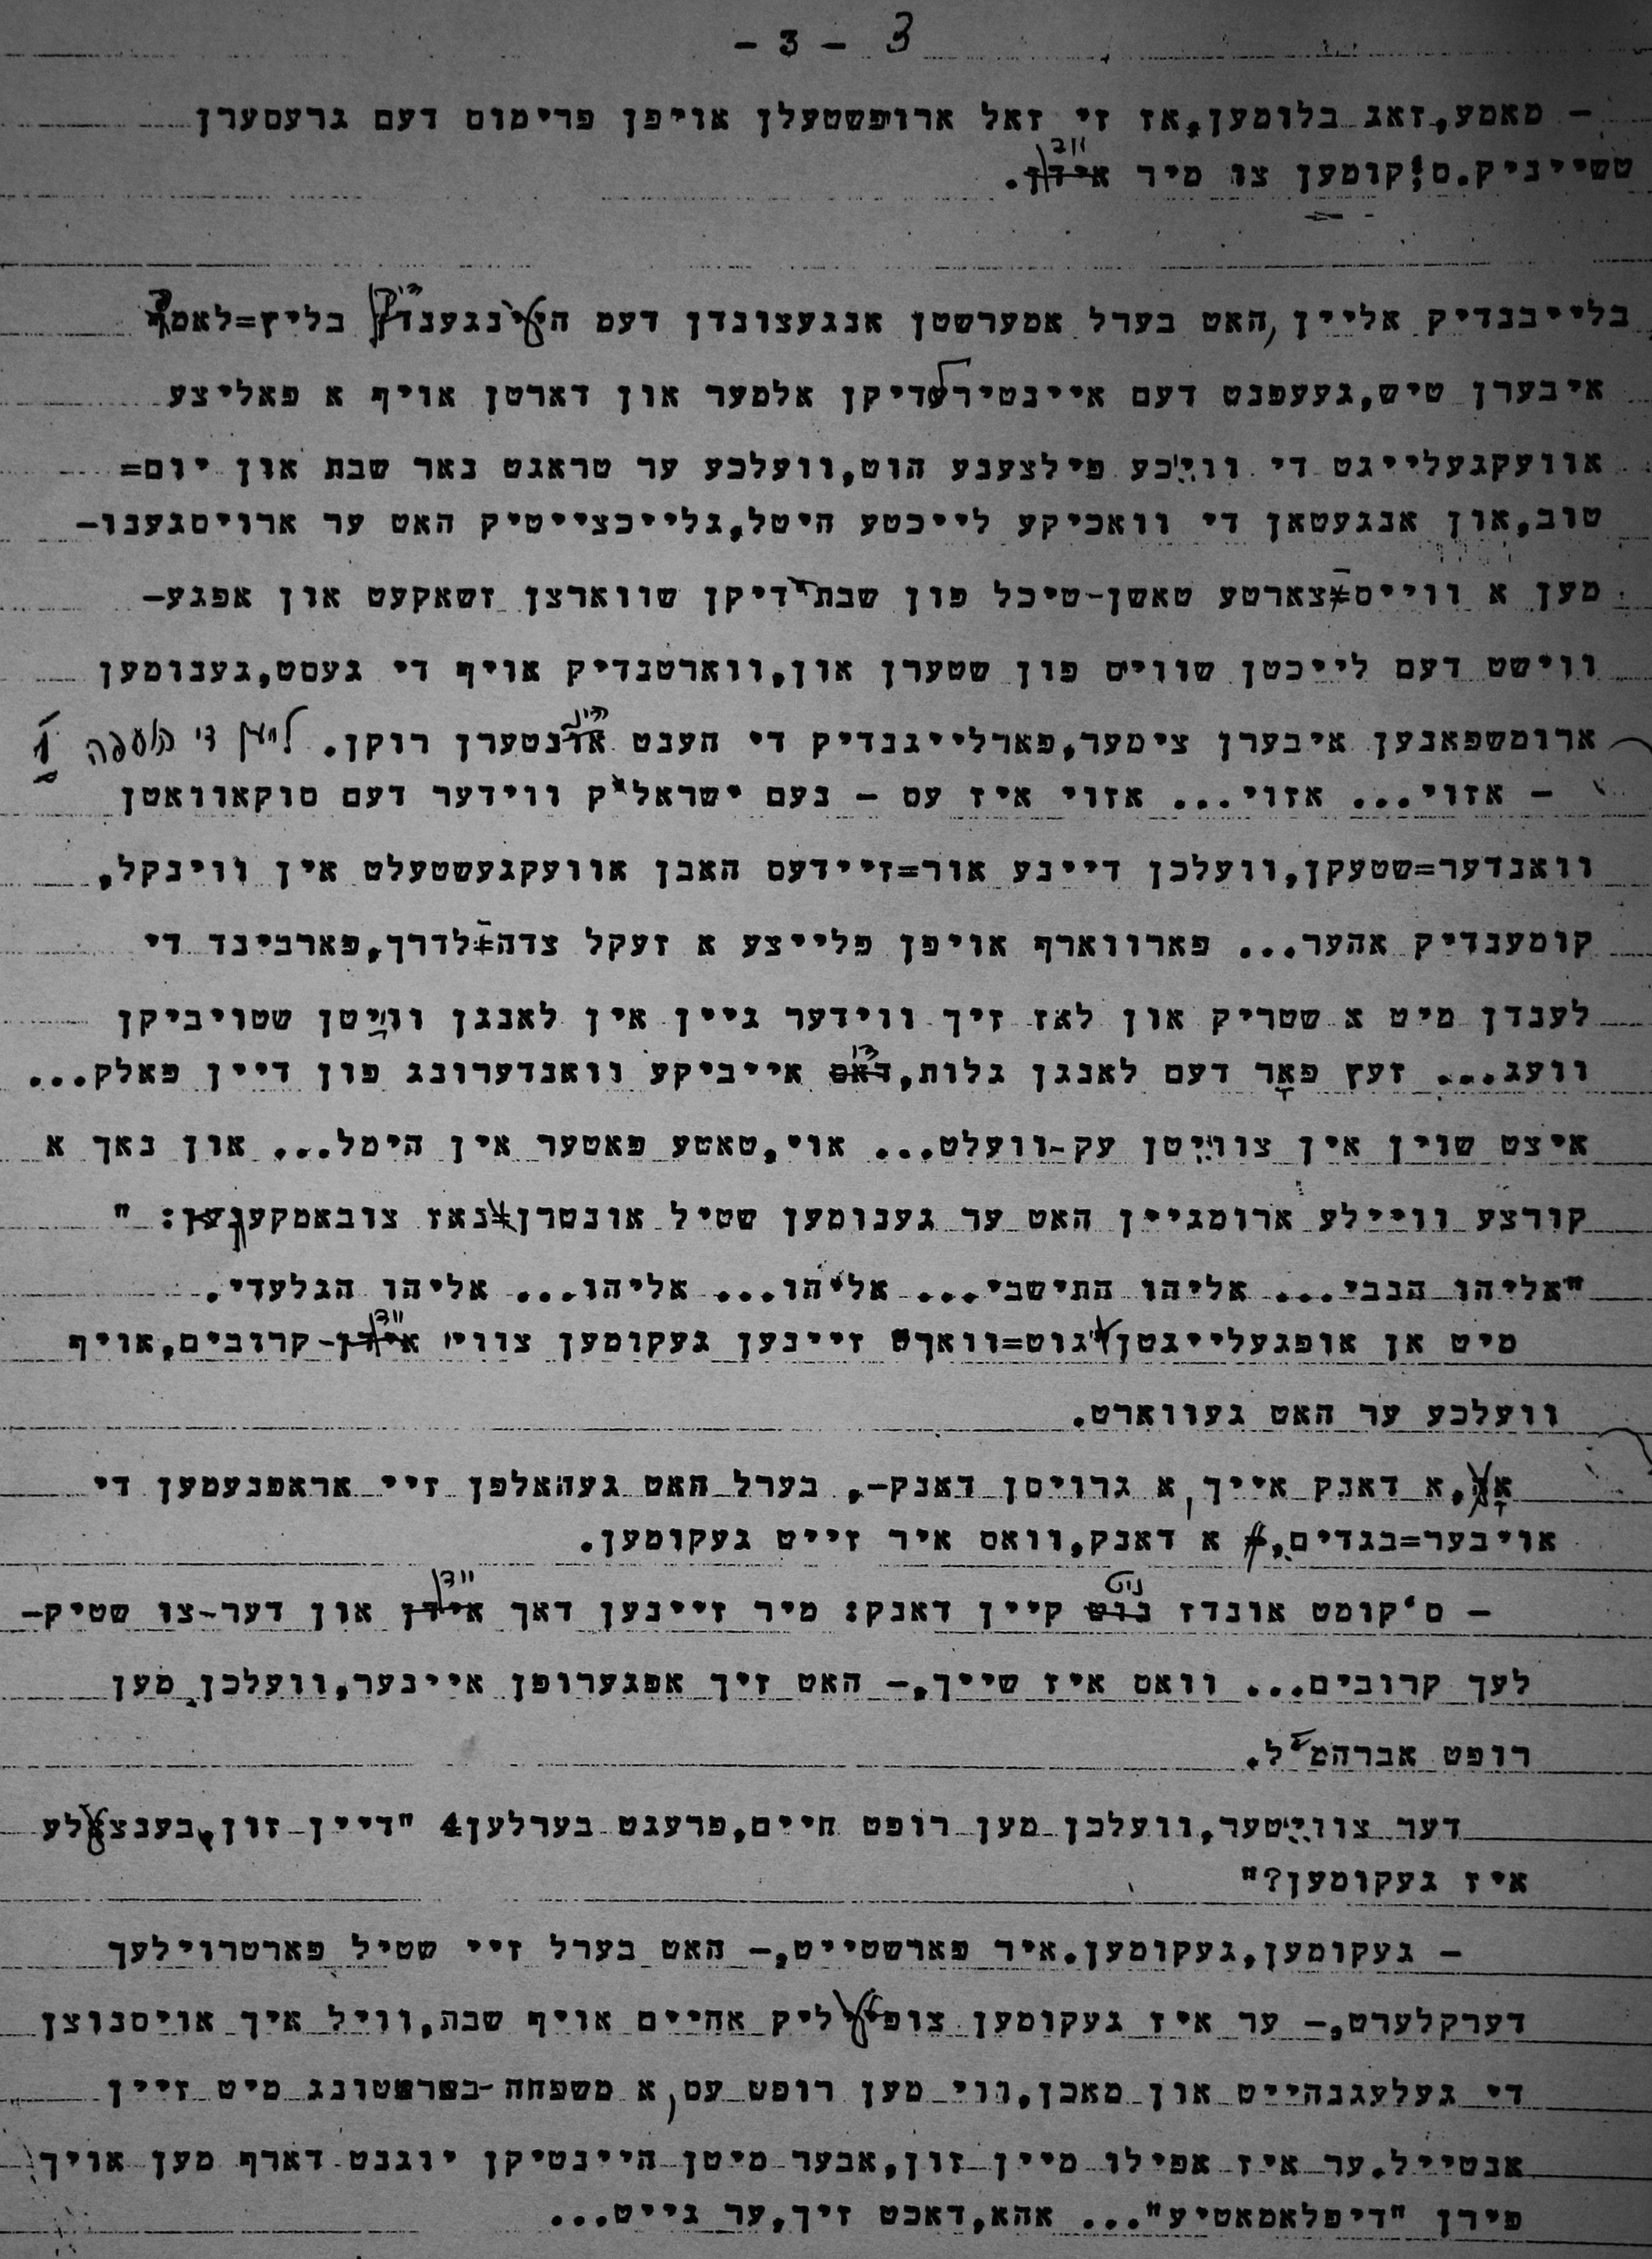 - 3 - 3
- מאמע,זאג בלומען,אז זי זאל ארופשטעלן אויפן פרימוס דעם גרעסערן
טשייניק.ס'קומען צו מיר אידן.
בלייבנדיק אליין, האט בערל אמערשטן אנגעצונדן דעם הענגענדיקן בליץ=לאמפ
איבערן טיש,געעפנט דעם איינטירלדיקן אלמער און דארטן אויף א פאליצע
אוועקגעלייגט די ווייכע פילצענע הוט,וועלכע ער טראגט נאר שבת און יום=
טוב,און אנגעטאן די וואכיקע לייכטע היטל,גלייכצייטיק האט ער ארויסגענו-
מען א ווייס-צארטע טאשן-טיכל פון שבתדיקן שווארצן זשאקעט און אפגע-
ווישט דעם לייכטן שווייס פון שטערן און,ווארטנדיק אויף די געסט,גענומען
ארומשפאנען איבערן צימער,פארלייגנדיק די הענט הינטערן רוקן.
- אזוי... אזוי... אזוי איז עס - נעם ישראליק ווידער דעם סוקאוואטן
וואנדער=שטעקן,וועלכן דיינע אור=זיידעס האבן אוועקגעשטעלט אין ווינקל,
קומענדיק אהער... פארווארף אויפן פלייצע א זעקל צדה-לדרך,פארבינד די
לענדן מיט א שטריק און לאז זיך ווידער גיין אין לאנגן ווייטן שטויביקן
וועג... זעץ פאר דעם לאנגן גלות,די אייביקע וואנדערונג פון דיין פאלק...
איצט שוין אין צווייטן עק-וועלט... אוי,טאטע פאטער אין הימל... און נאך א
קורצע וויילע ארומגיין האט ער גענומען שטיל אונטרן נאז צובאמקען: "
"אליהו הנביא... אליהו התישבי... אליהו... אליהו... אליהו הגלעדי.
מיט אן אופגעלייגטן גוט=ווארט זיינען געקומען צוויי יידן-קרובים,אויף
וועלכע ער האט געווארט.
אָ,א דאנק אייך, א גרויסן דאנק-, בערל האט געהאלפן זיי אראפנעמען די
אויבער=בגדים,- א דאנק,וואס איר זייט געקומען.
- ס'קומט אונדז ניט קיין דאנק: מיר זיינען דאך יידן און דער-צו שטיק-
לעך קרובים... וואס איז שייך,- האט זיך אפגערופן איינער,וועלכן מען
רופט אברהמל.
דער צווייטער,וועלכן מען רופט חיים,פרעגט בערלען: "דיין זון,בענצעלע
איז געקומען?"
- געקומען,געקומען.איר פארשטייט,- האט בערל זיי שטיל פארטרוילעך
דערקלערט,- ער איז געקומען צופעליק אהיים אויף שבת,וויל איך אויסנוצן
די געלעגנהייט און מאכן,ווי מען רופט עס, א משפחה-בעראטונג מיט זיין
אנטייל.ער איז אפילו מיין זון,אבער מיטן היינטיקן יוגנט דארף מען אויך
פירן "דיפלאמאטיע"... אהא,דאכט זיך,ער גייט...